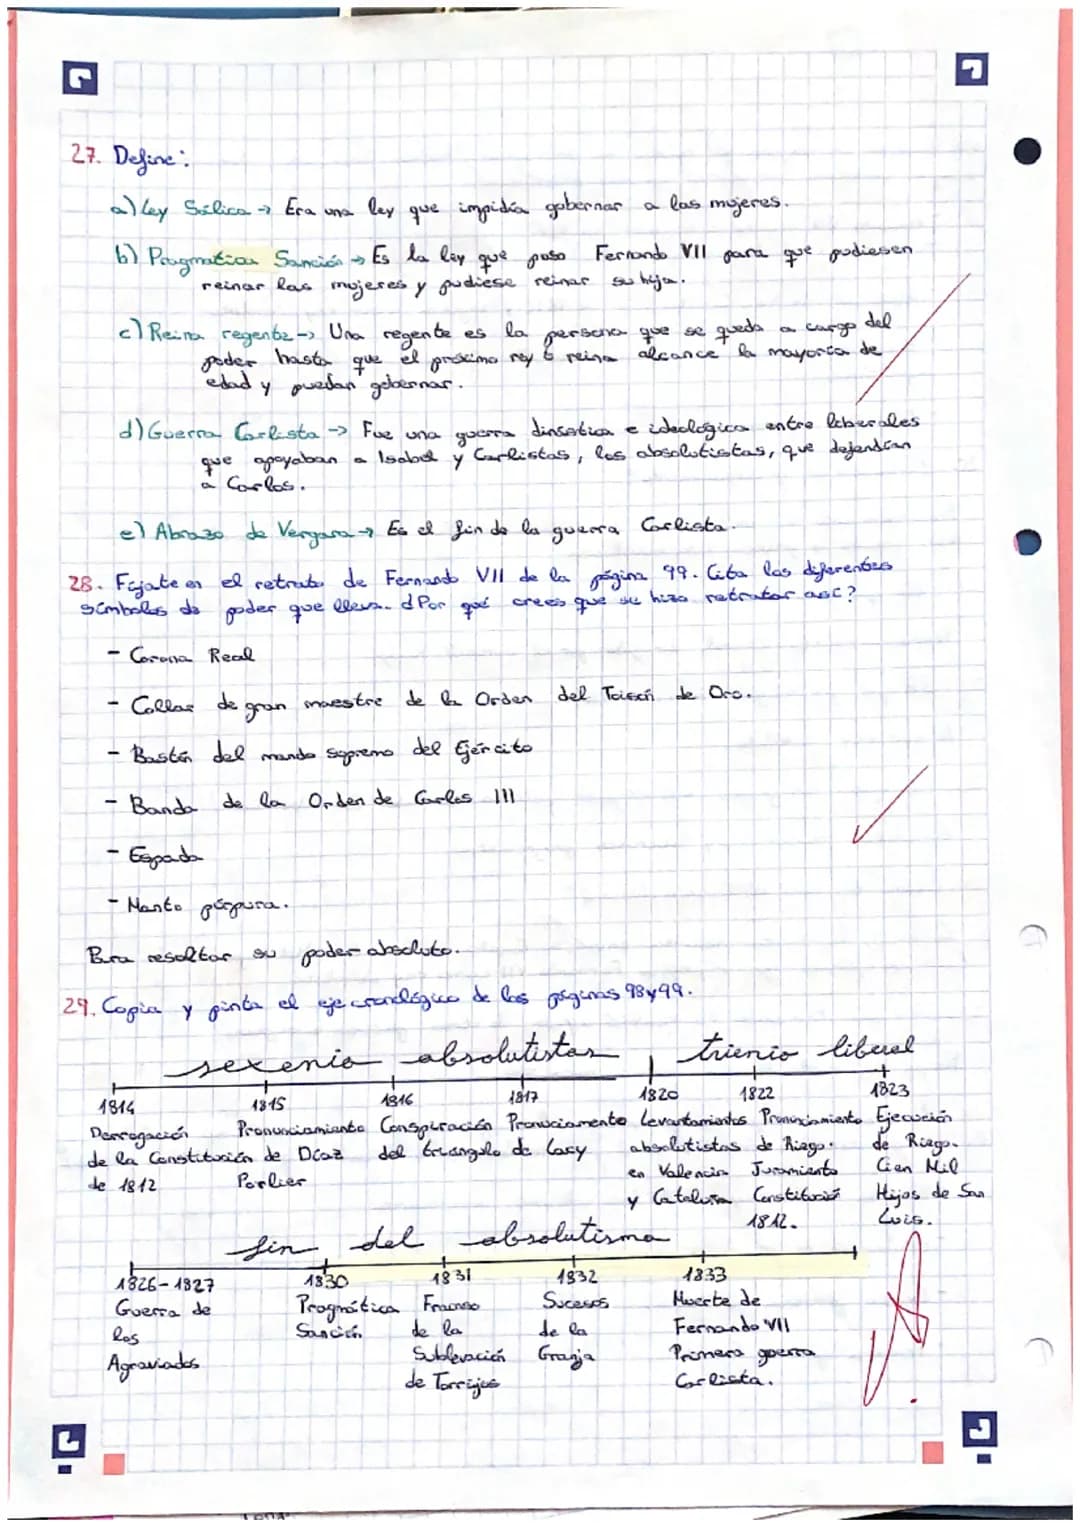 27. Define:
a) Ley Sálica → Era una ley que impidía gobernar a las mujeres.
b) Pragmatica Sanción → Es la ley que puso Fernando VII para que pudiesen
reinar las mujeres y pudiese reinar su hija.
c) Reina regente → Una regente es la persona que se queda a cargo del
poder hasta que el próximo rey o reina alcance la mayoría de
edad y puedan gobernar.
d) Guerra Carlista → Fue una guerra dinsatica e ideológica entre liberales
que apoyaban a Isabel y Carlistas, los absolutistas, que defendían
a Carlos.
e) Abrazo de Vergara → Es el fin de la guerra Carlista.
28. Fíjate en el retrato de Fernando VII de la página 99. Cita los diferentes
símbolos de poder que lleva. ¿Por qué crees que se hizo retratar así?
- Corona Real
- Collar de gran maestre de la Orden del Toisón de Oro.
- Bastón del mando supremo del Ejército
- Banda de la Orden de Carlos III
- Espada
- Manto púrpura.
Para resaltar su poder absoluto.
29. Copia y pinta el eje cronológico de las páginas 98 y 99.
sexenio absolutistas trienio liberal
1814 1815 1816 1817 1820 1822 1823
Derrogación Pronunciamiento Conspiración Pronuciamento Levantamientos Pronunciamiento Ejecución
de la Constitución de Díaz del triangulo de Lacy absolutistas de Riego. de Riego.
de 1812 Porlier en Valencia Juramiento Cien Mil
y Cataluña Constitución Hijos de San
1812. Luis.
fin del absolutismo
1826-1827 1830 1831 1832 1833
Guerra de Pragmática Fracaso Sucesos Muerte de
los Sanción de la de la Fernando VII
Agraviados Sublevación Granja Primera guerra
de Torrijos Carlista.